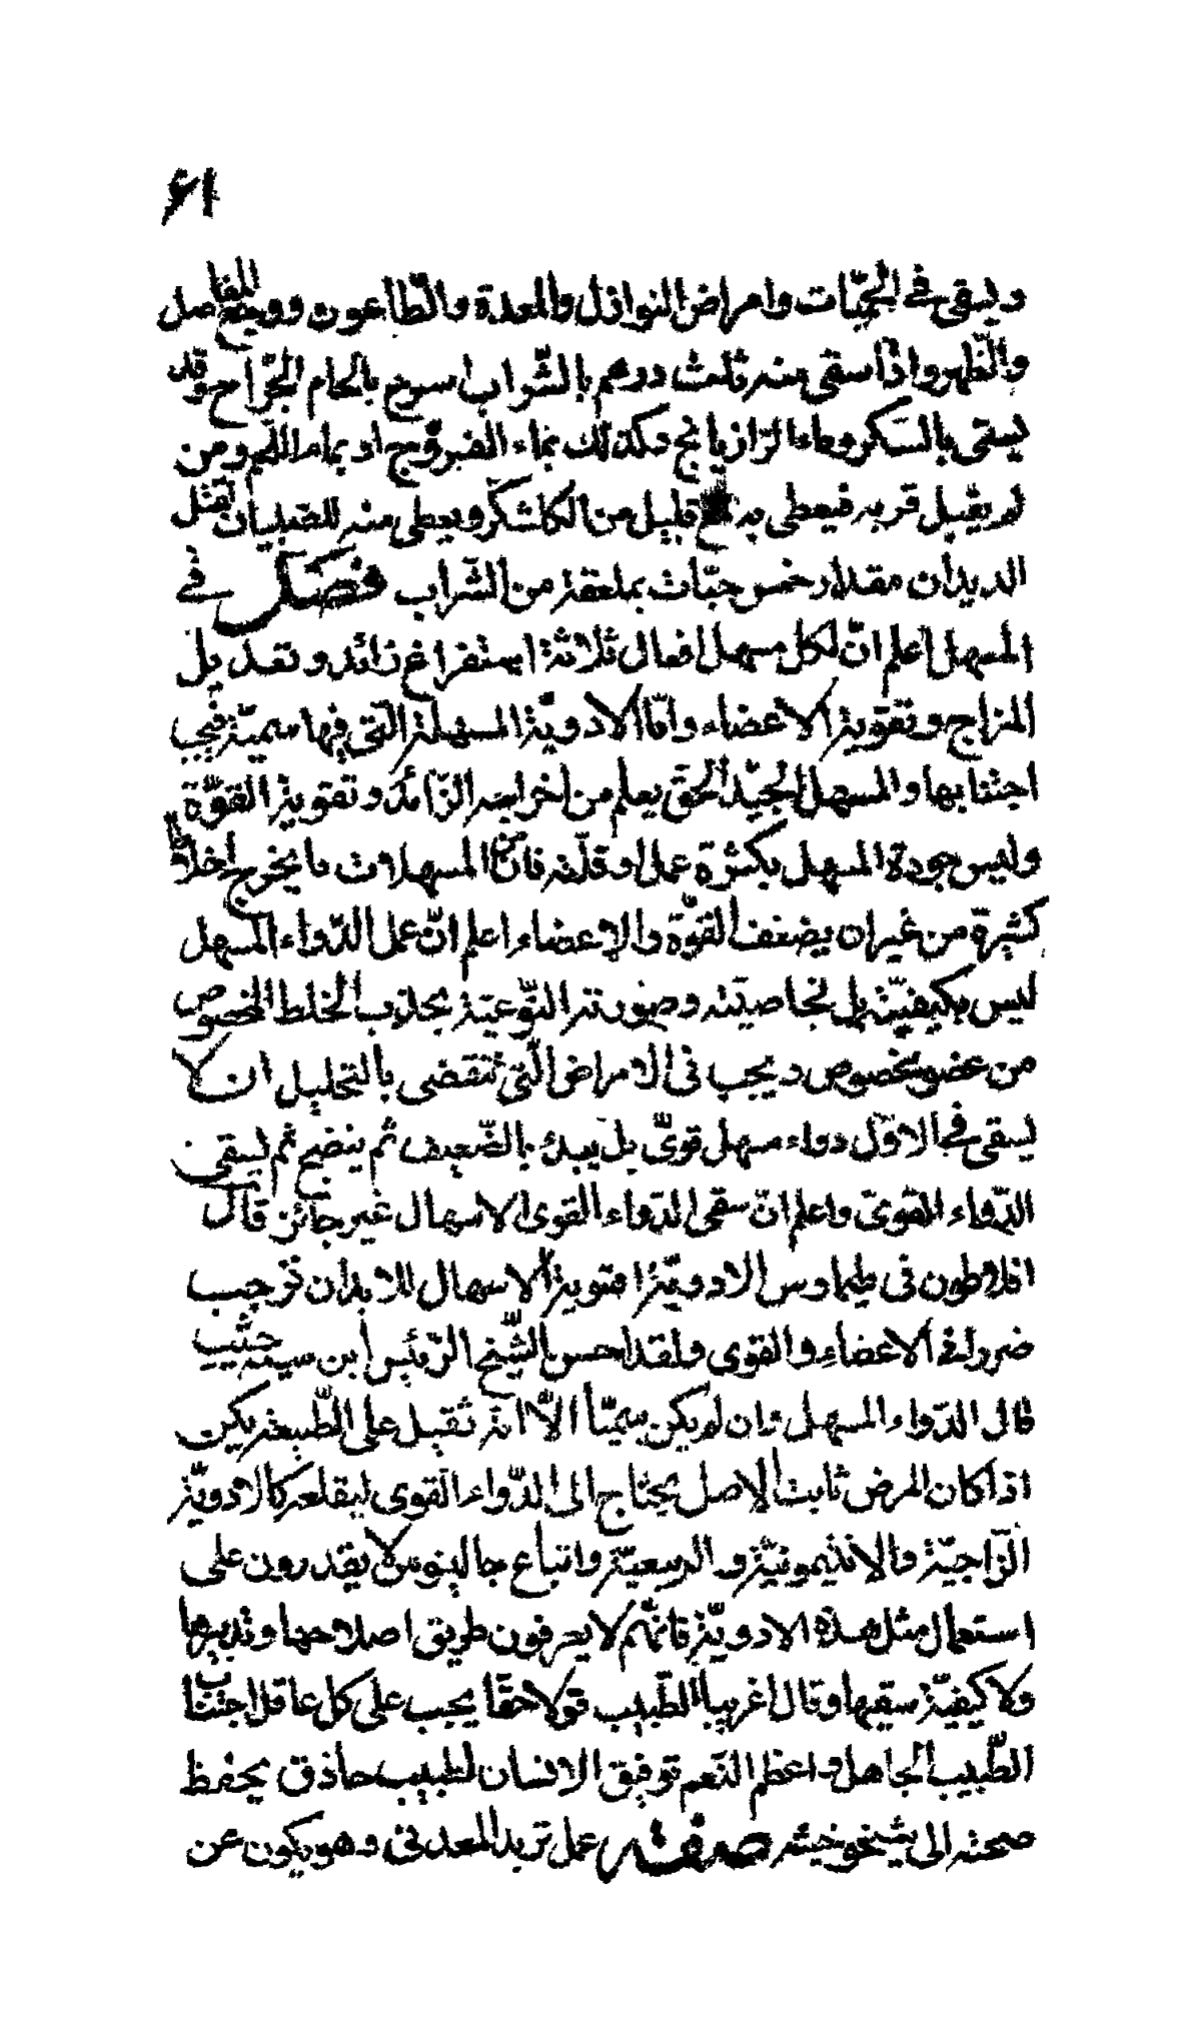 ٦١
ويسقى في الحميّات وامراض النوازل والمعدة والطّاعون ووجع المفاصل
والظّهر واذا سقى منه ثلث درهم بالشّراب اسرع بالحام الجراح وقد
يسقى بالسكر وماء الرّازيانج وكذلك بماء الفرّوج او بماء اللّحم ومن
لم يقبل قربه فيعطى به مع قليل من الكلشكر ويعطى منه للصبيان لقتل
الديدان مقدار خمس حبّات بملعقة من الشّراب فصل في
المسهل اعلم انّ لكل مسهل افعال ثلاثة استفراغ زائد وتعديل
المزاج وتقوية الاعضاء وامّا الادويّة المسهلة الّتي فيها سميّة فيجب
اجتنابها والمسهل الجيّد الحق يعلم من اخراجه الزّائد وتقوية القوّة
وليس جودة المسهل بكثرة عمل او قلّته فان من المسهلات ما يخرج اخلاطا
كثيرة من غير ان يضعف القوّة والاعضاء اعلم انّ عمل الدّواء المسهل
ليس بكيفيّته بل بخاصيّته وصورته النوّعيّة يجذب الخلط المخصوص
من عضو مخصوص ويجب فى الامراض الّتى تنقضى بالتحليل ان لا
يسقى في الاوّل دواء مسهل قوىّ بل يبدء بالضّعيف ثم ينضج ثم يسقى
الدّواء القوىّ واعلم انّ سقى الدّواء القوى الاسهال غير جائز قال
افلاطون فى طيماوس الادويّة القوية الاسهال للابدان توجب
ضررا في الاعضاء والقوى ولقد احسن الشّيخ الرّئيس ابن سينه حيث
قال الدّواء المسهل وان لم يكن سميّا الاّ انّه ثقيل على الطّبيعة يكن
اذا كان المرض ثابت الاصل يحتاج الى الدّواء القوى ليقلعه كالادويّة
الزّاجيّة والانتيمونيّة والربيعيّة واتباع جالينوس لا يقدرون على
استعمال مثل هذه الادويّة فانّهم لا يعرفون طريق اصلاحها وتدبيرها
ولا كيفيّة سقيها وقال اغريبا الطّبيب قولا حقّا يجب على كل عاقل اجتناب
الطّبيب الجاهل واعظم النّعم توفيق الانسان لطبيب حاذق يحفظ
صحته الى شيخوخيته صفة عمل تربد المعدنى وهو يكون عن